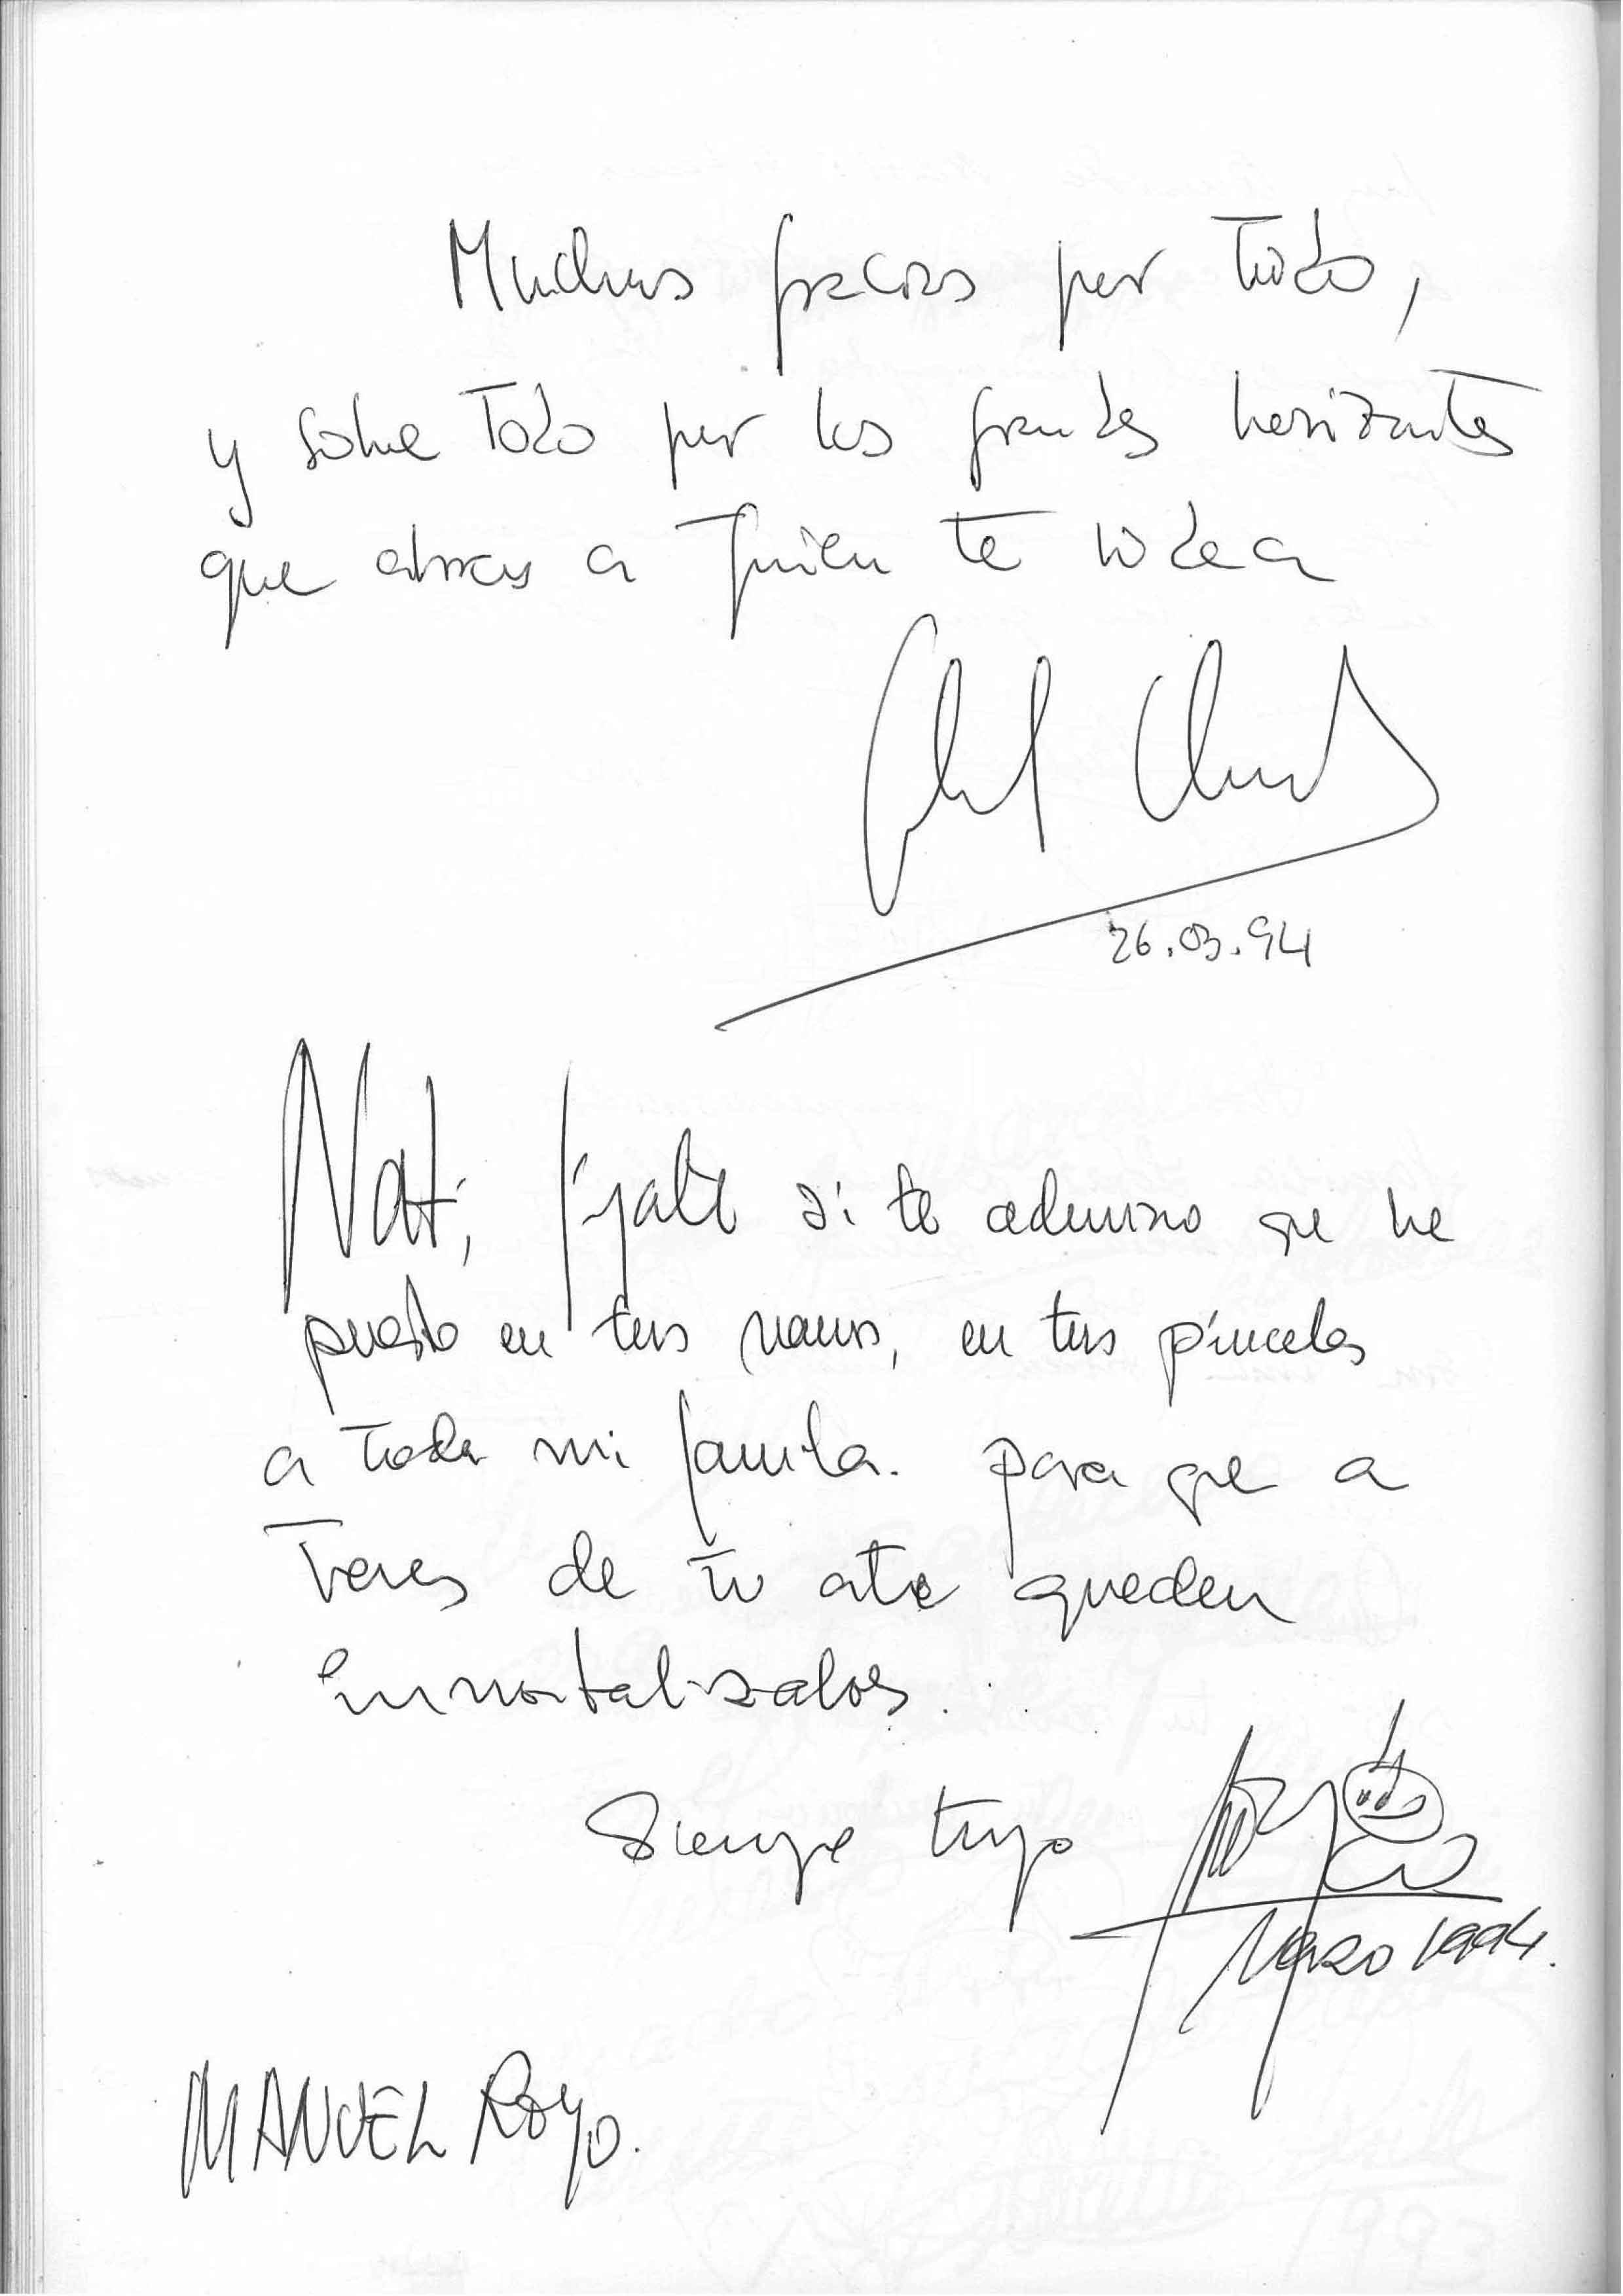 Muchas gracias por todo,
y sobre todo por los grandes horizontes
que abres a quien te rodea
26.03.94
Nati, fíjate si te admiro que he
puesto en tus manos, en tus pinceles
a toda mi familia. para que a
traves de tu arte queden
inmortalizados...
Siempre tuyo
Marzo 1994.
MANUEL ROYO.